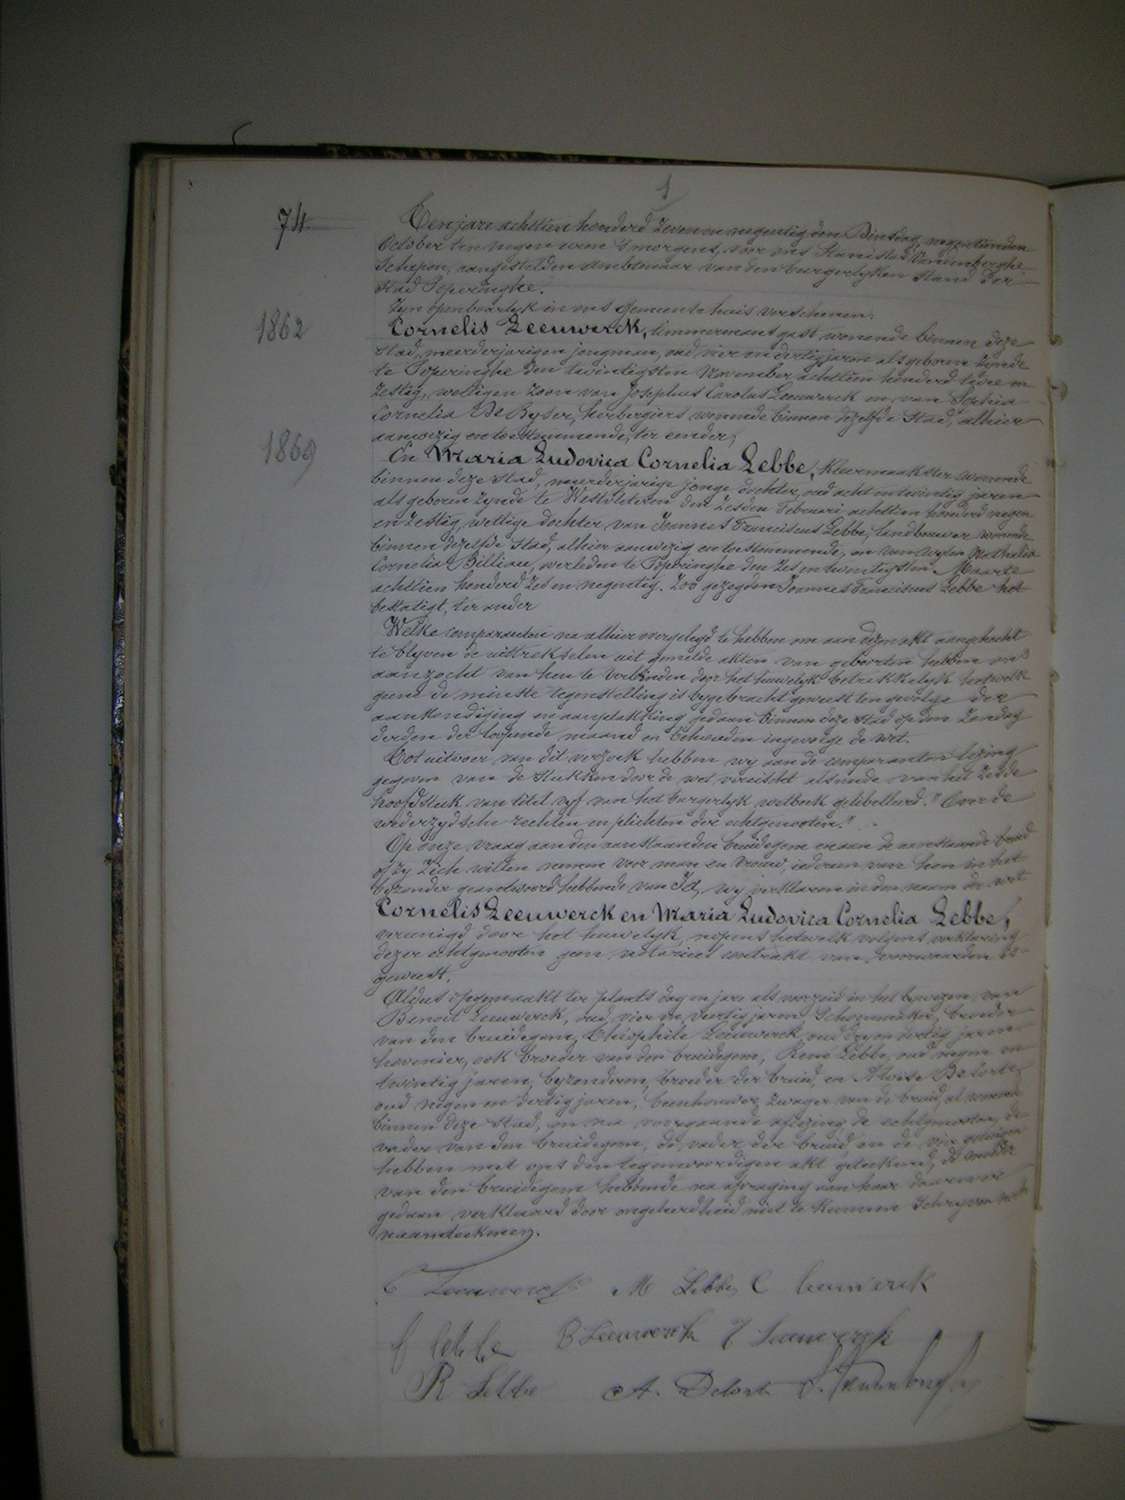 1
74
Ten jare achttien honderd zeven en negentig den Dinsdag negentienden
October ten negen uren 's morgens, voor ons Stanislas Vanrenberghe
Schepen, aangestelden ambtenaar van den burgerlyken stand der
stad Poperinghe.
Zyn openbaarlyk in ons gemeente huis verschenen.
1862
Cornelis Leeuwerck, timmermansgast wonende binnen deze
stad, meerderjarigen jongman, oud vier en dertig jaren als geboren zynde
te Poperinghe den twintigsten November achttien honderd twee en
zestig, wettigen zoon van Josephus Carolus Leeuwerck en van Sophia
Cornelia De Ryder, herbergiers wonende binnen dezelfde stad, alhier
aanwezig en toestemmende, ter eender,
1869
En Maria Ludovica Cornelia Lebbe, kleermaakster wonende
binnen deze stad, meerderjarige jonge dochter, oud acht en twintig jaren
als geboren zynde te Westvleteren den zesden Februari achttien honderd negen
en zestig, wettige dochter van Joannes Franciscus Lebbe, landbouwer wonende
binnen dezelfde stad, alhier aanwezig en toestemmende, en van wylen Nathalia
Cornelia Billiau, overleden te Poperinghe den zes en twintigsten Maarte
achttien honderd zes en negentig. Zoo gezegden Joannes Franciscus Lebbe het
bestatigt, ter ander
Welke comparanten na alhier overgelegd te hebben om aan dezen akt aangehecht
te blyven de uittrekselen uit gemelde akten van geboorten hebben ons
aanzocht van hen te verbinden door het huwelyk betrekkelyk hetwelk
geene de minste tegenstelling is bygebracht geweest ten gevolge der
aankondiging en aanplakking gedaan binnen deze stad op den Zondag
derden der loopende maand en behouden ingevolge de wet.
Tot uitvoer van dit verzoek hebben wy aan de comparanten lezing
gegeven van de stukken door de wet vereischt alsmede van het zesde
hoofdstuk van titel vyf van het burgerlyk wetboek getitelleerd. "Over de
wederzydsche rechten en plichten der echtgenooten."
Op onze vraag aan den aanstaanden bruidegom en aan de aanstaande bruid
of zy zich willen nemen voor man en vrouw, iedereen van hen in het
byzonder geantwoord hebbende van Ja, wy verklaren in den naam der wet
Cornelis Leeuwerck en Maria Ludovica Cornelia Lebbe,
vereenigd door het huwelyk, nopens hetwelk volgens verklaring
dezer echtgenooten geen notarieel contrakt van voorwaarden is
geweest.
Aldus opgemaakt ter plaats dag en jare als voorzeid in het bywezen van
Benoit Leeuwerck, oud vier en veertig jaren Schoenmaker, broeder
van den bruidegom, Theophile Leeuwerck oud en dertig jaren
hovenier, ook broeder van den bruidegom, René Lebbe, oud negen en
twintig jaren, byzonderen, broeder der bruid, en Aloise Delorte
oud negen en dertig jaren, beenhouwer, zwager van de bruid, al wonende
binnen deze stad, en na voorgaande aflezing de echtgenooten, de
vader van den bruidegom, de vader der bruid en de vier getuigen
hebben met ons den tegenwoordigen akt geteekend, de moeder
van den bruidegom hebbende na afvraging aan haar daarover
gedaan verklaard door ongeleerdheid niet te kunnen schryven noch
naamteekenen.
C Leeuwerck M Lebbe C Leeuwerck
f lebbe B Leeuwerck T Leeuwerck
R Lebbe A. Delort